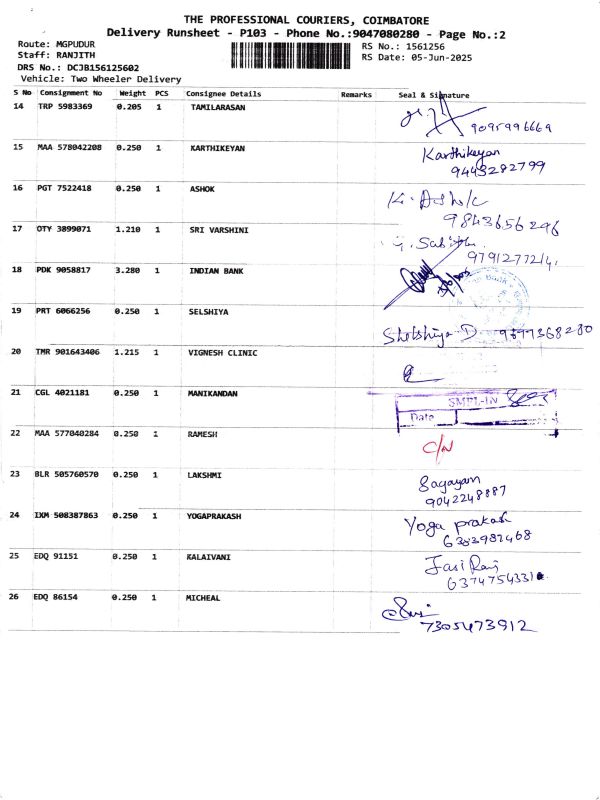 THE PROFESSIONAL COURIERS, COIMBATORE
Delivery Runsheet - P103 - Phone No.:9047080280 - Page No.:2
Route: MGPUDUR
Staff: RANJITH
DRS No.: DCJB156125602
Vehicle: Two Wheeler Delivery
RS No.: 1561256
RS Date: 05-Jun-2025
S No Consignment No Weight PCS Consignee Details Remarks Seal & Signature
14 TRP 5983369 0.205 1 TAMILARASAN
9095996669
15 MAA 578042208 0.250 1 KARTHIKEYAN Karthikeyan
9443282799
16 PGT 7522418 0.250 1 ASHOK K. Ashok
9843656296
17 OTY 3899071 1.210 1 SRI VARSHINI
9791277214.
18 PDK 9058817 3.280 1 INDIAN BANK
19 PRT 6066256 0.250 1 SELSHIYA Shelshiya D
20 TMR 901643406 1.215 1 VIGNESH CLINIC
21 CGL 4021181 0.250 1 MANIKANDAN SMPL-IN
Date
22 MAA 577040284 0.250 1 RAMESH C/N
23 BLR 505760570 0.250 1 LAKSHMI Sagayam
9042248887
24 IXM 508387863 0.250 1 YOGAPRAKASH Yoga prakash
6383987468
25 EDQ 91151 0.250 1 KALAIVANI
26 EDQ 86154 0.250 1 MICHEAL
7305473912